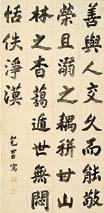 善與人交久而能敬
榮且溺之耦耕甘山
林之杳藹遁世無悶
恬佚淨漠